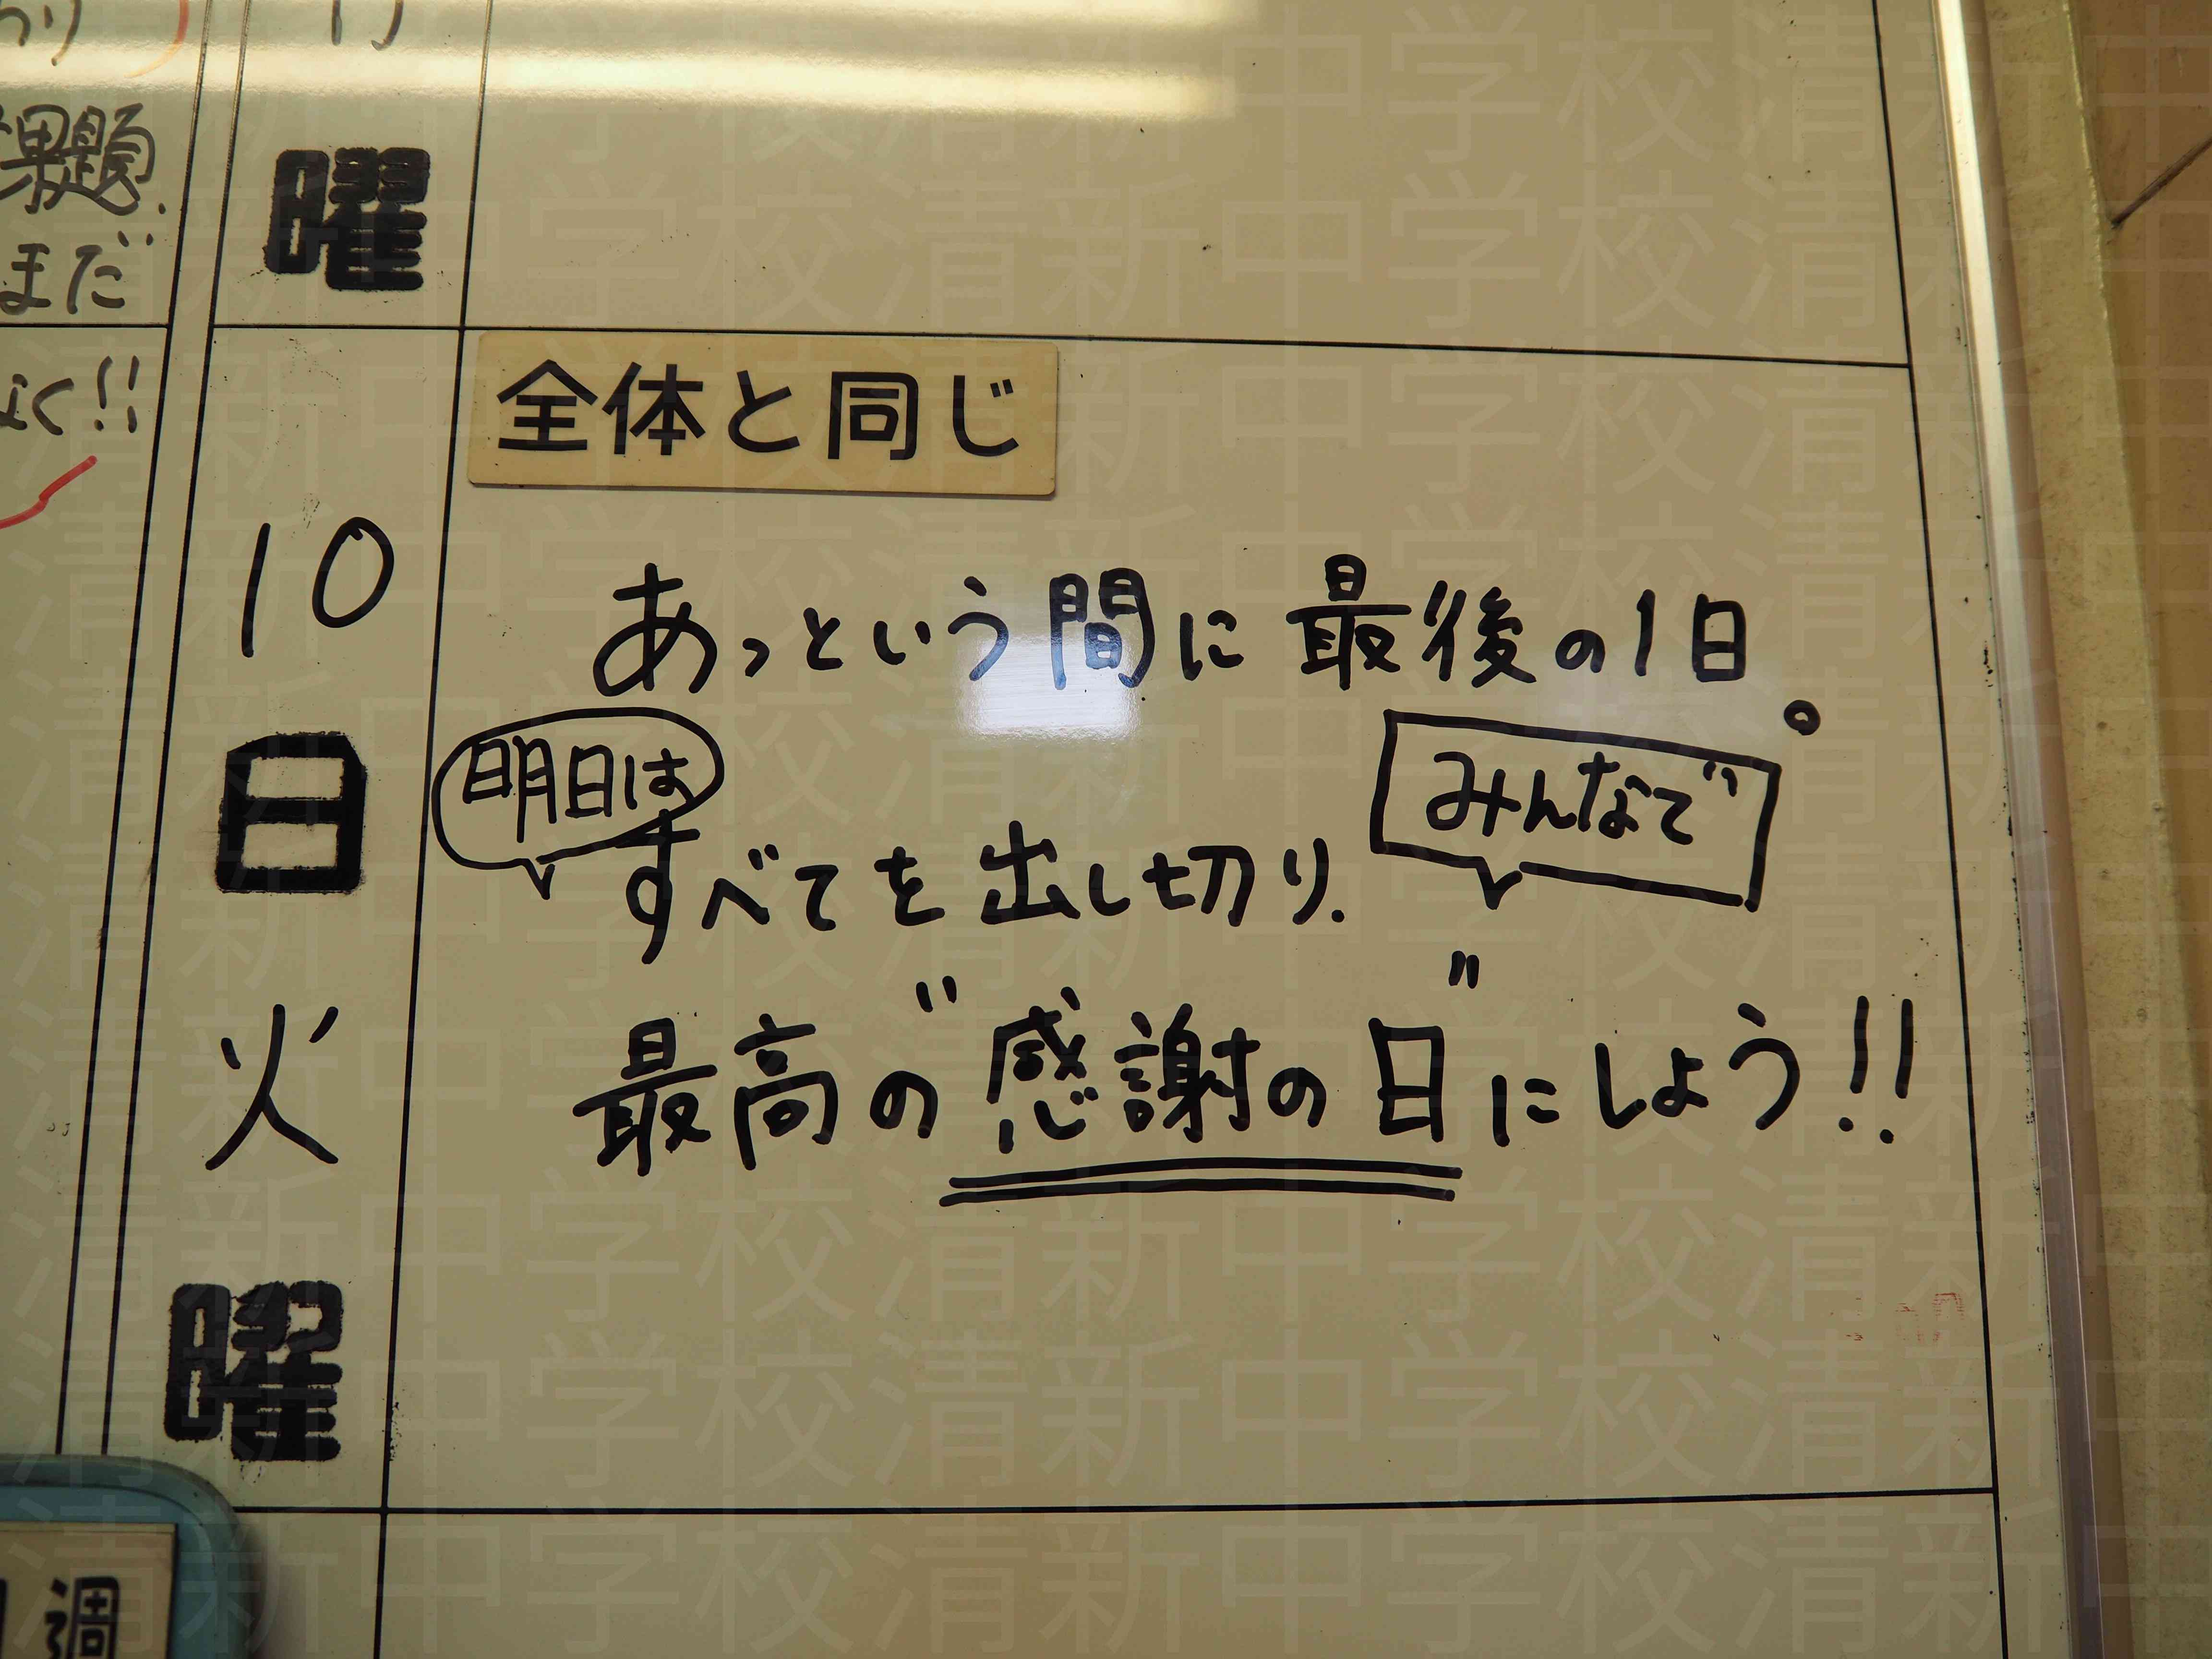 課題.
まだ
なく!!
曜
全体と同じ
10日火曜
あっという間に最後の1日。
明日は
みんなで
すべてを出し切り.
最高の"感謝の日"にしよう!!
週
清新中学校